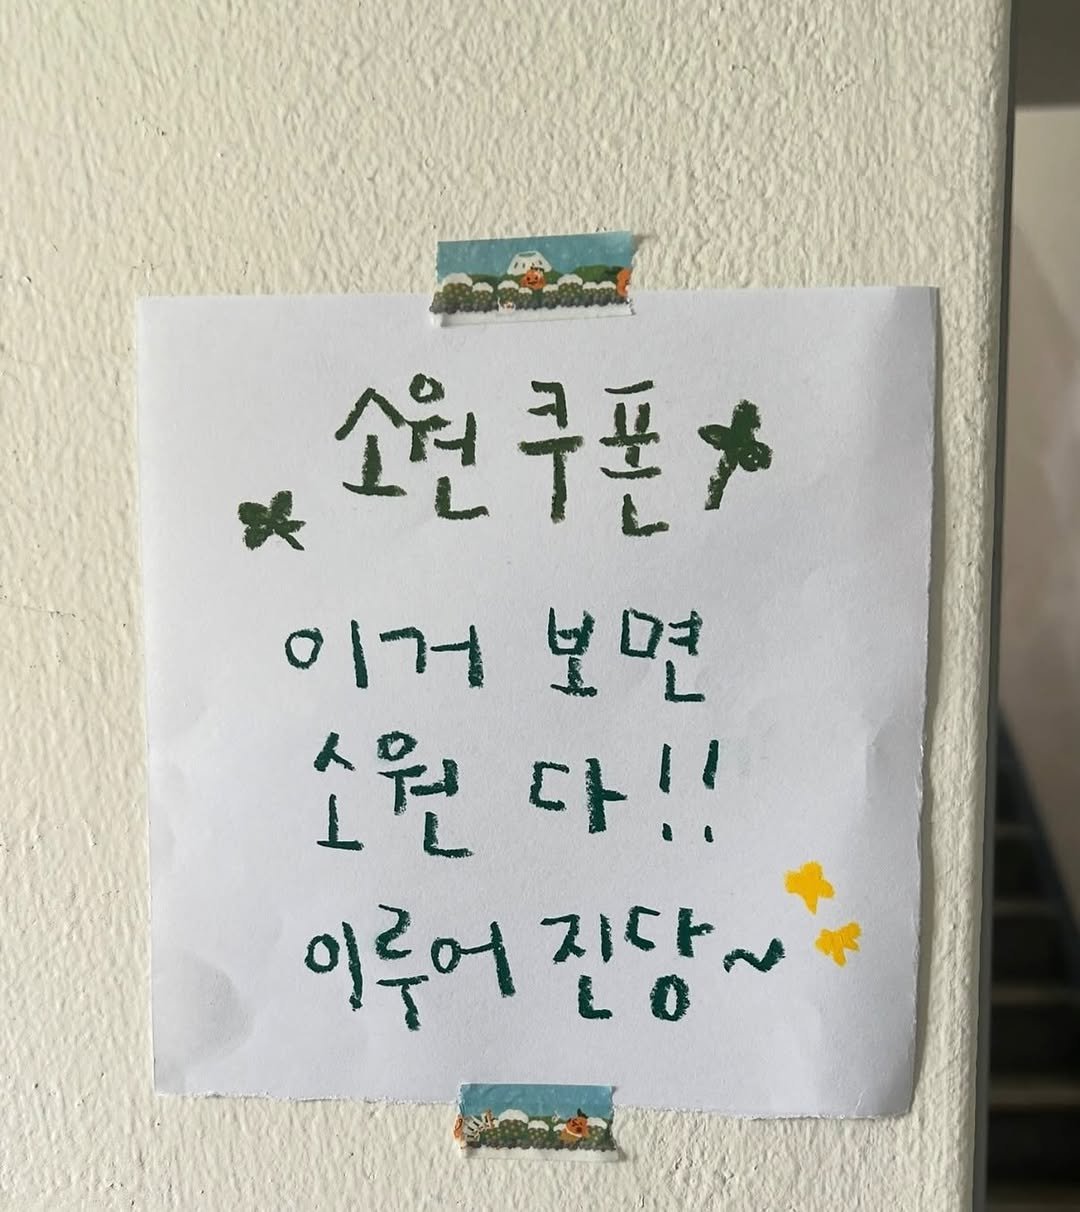 소원 쿠폰
이거 보면
소원 다!!
이루어 진당~